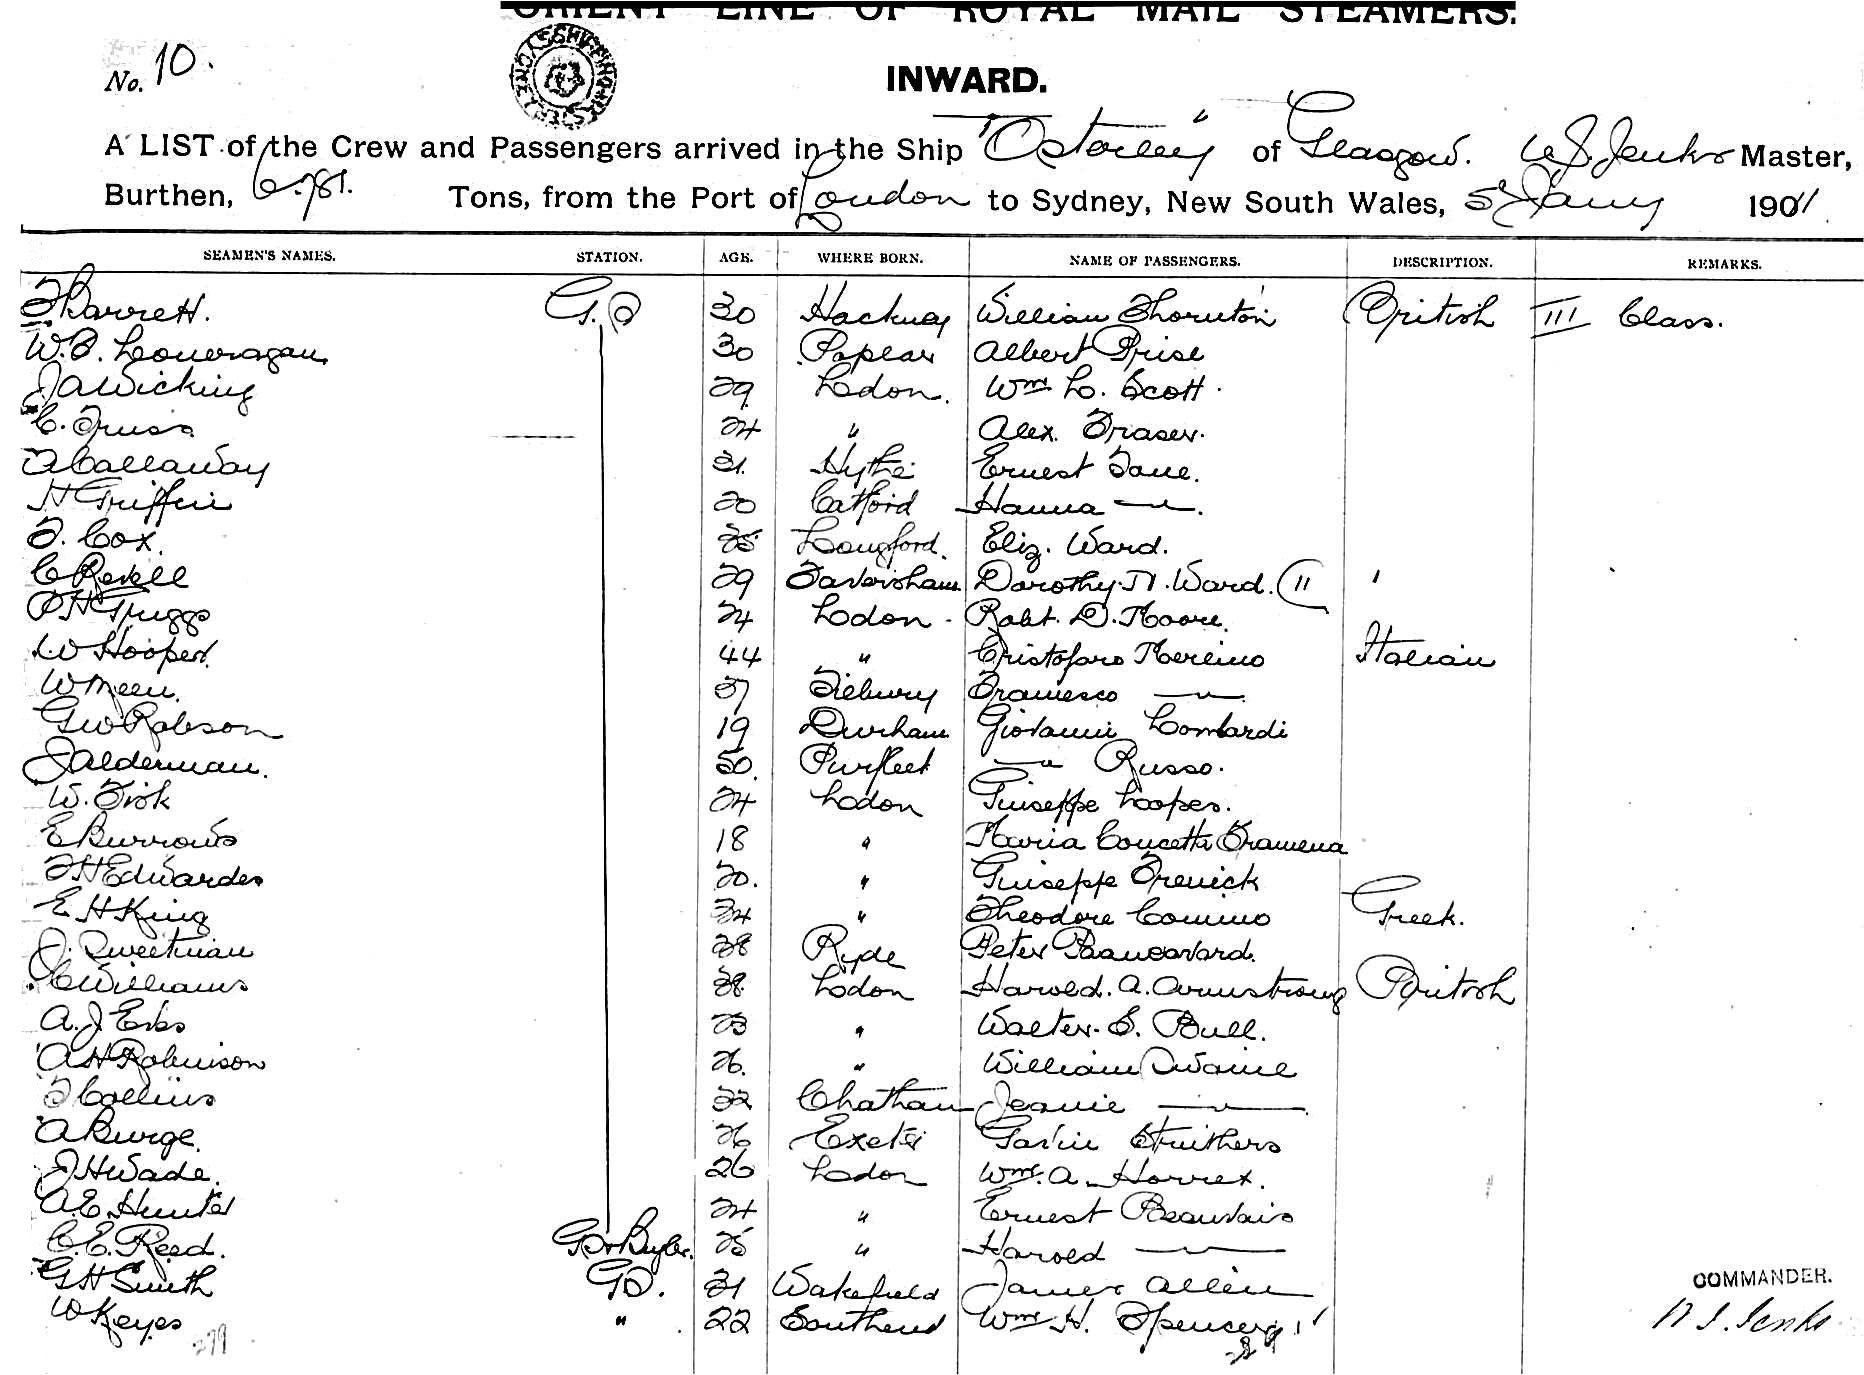 ORIENT LINE OF ROYAL MAIL STEAMERS.
No. 10.
INWARD.
A LIST of the Crew and Passengers arrived in the Ship "Osterley" of Glasgow. Jenks Master,
Burthen, Tons, from the Port of London to Sydney, New South Wales, 5 Jany 1901
SEAMEN'S NAMES. STATION. AGE. WHERE BORN. NAME OF PASSENGERS. DESCRIPTION. REMARKS.
F Barrett. G.S 30 Hackney William Thornton British III Class.
W.P. Loneragan 30 Poplar Albert Prise
J A Wicking 29 Lodon. Wm L. Scott.
C. Truss 24 " Alex. Fraser.
F Callaway 31. Hythe Ernest Tane.
H Griffin 20 Catford Hanna —"—.
F. Cox. 25 Longford. Eliz. Ward.
C Revell 29 Faversham Dorothy. Ward. (11 '
P H Griggs 24 Lodon - Robt. D. Moore.
W Hooper. 44 " Cristofaro Merlino Italian
W Meen. 37 Tilbury Francesco —"—
G W Robson 19 Durham Giovanni Lombardi
J Alderman. 50. Purfleet —"— Russo.
W. Fisk 24 Lodon Giuseppe Loopes.
E Burrows 18 " Maria Concetta
F H Edwardes 20. " Giuseppe
E H King 34 " Theodore Comino Greek.
J. Sweetman 28 Ryde Peter
C Williams 38 Lodon Harold. A. Armstrong British
A. J Erbs 23 " Walter. S. Bull.
A H Robinson 26. " William Swaine
F Collins 22 Chatham Jeanie —"—
A Burge. 26 Exeter Gavin Struthers
J H Wade. 26 Lodon Wm. A. Horrex.
A. E. Hunter 24 " Ernest Beauvais
C. E. Reed. GS & Bugler. 25 " Harold —"—
G H Smith GS. 31 Wakefield James Allen
W Keyes " 22 Southend Wm. H. Spencer
COMMANDER.
Jenks